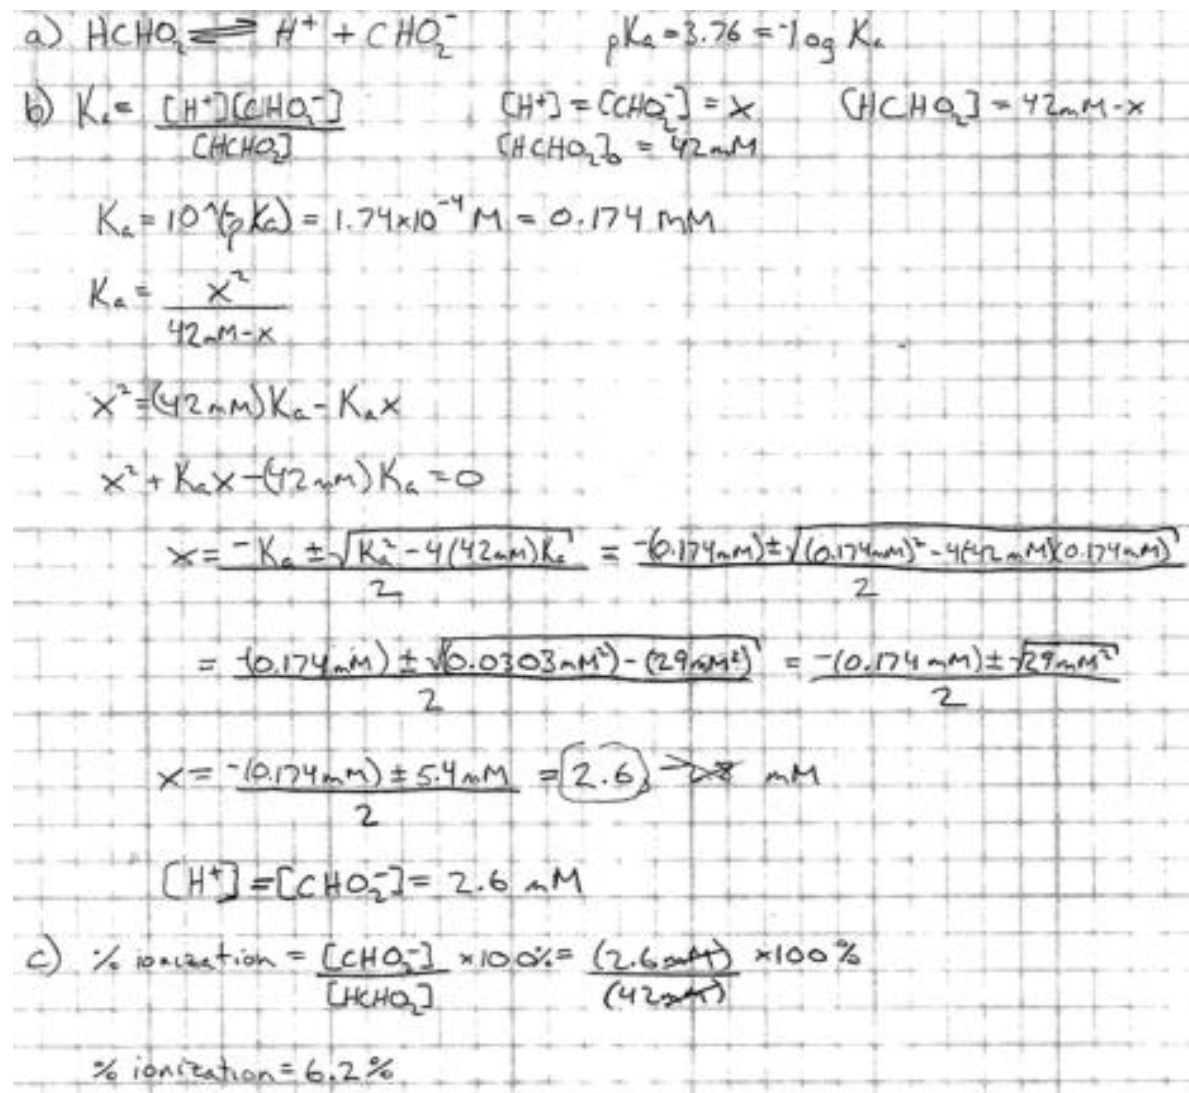 a) HCHO₂ ⇌ H⁺ + CHO₂⁻ pKa = 3.76 = -log Ka
b) Ka = [H⁺][CHO₂⁻] / [HCHO₂] [H⁺] = [CHO₂⁻] = x [HCHO₂] = 42mM-x
[HCHO₂]₀ = 42mM
Ka = 10^(-pKa) = 1.74×10⁻⁴ M = 0.174 mM
Ka = x² / 42mM-x
x² = (42mM)Ka - Kax
x² + Kax - (42mM)Ka = 0
x = -Ka ± √(Ka² - 4(42mM)Ka) / 2 = -(0.174mM) ± √((0.174mM)² - 4(42mM)(0.174mM)) / 2
= -(0.174mM) ± √((0.0303mM²) - (29mM²)) / 2 = -(0.174mM) ± √29mM² / 2
x = -(0.174mM) ± 5.4mM / 2 = 2.6, mM
[H⁺] = [CHO₂⁻] = 2.6 mM
c) % ionization = [CHO₂⁻] / [HCHO₂] ×100% = (2.6mM) / (42mM) ×100%
% ionization = 6.2%